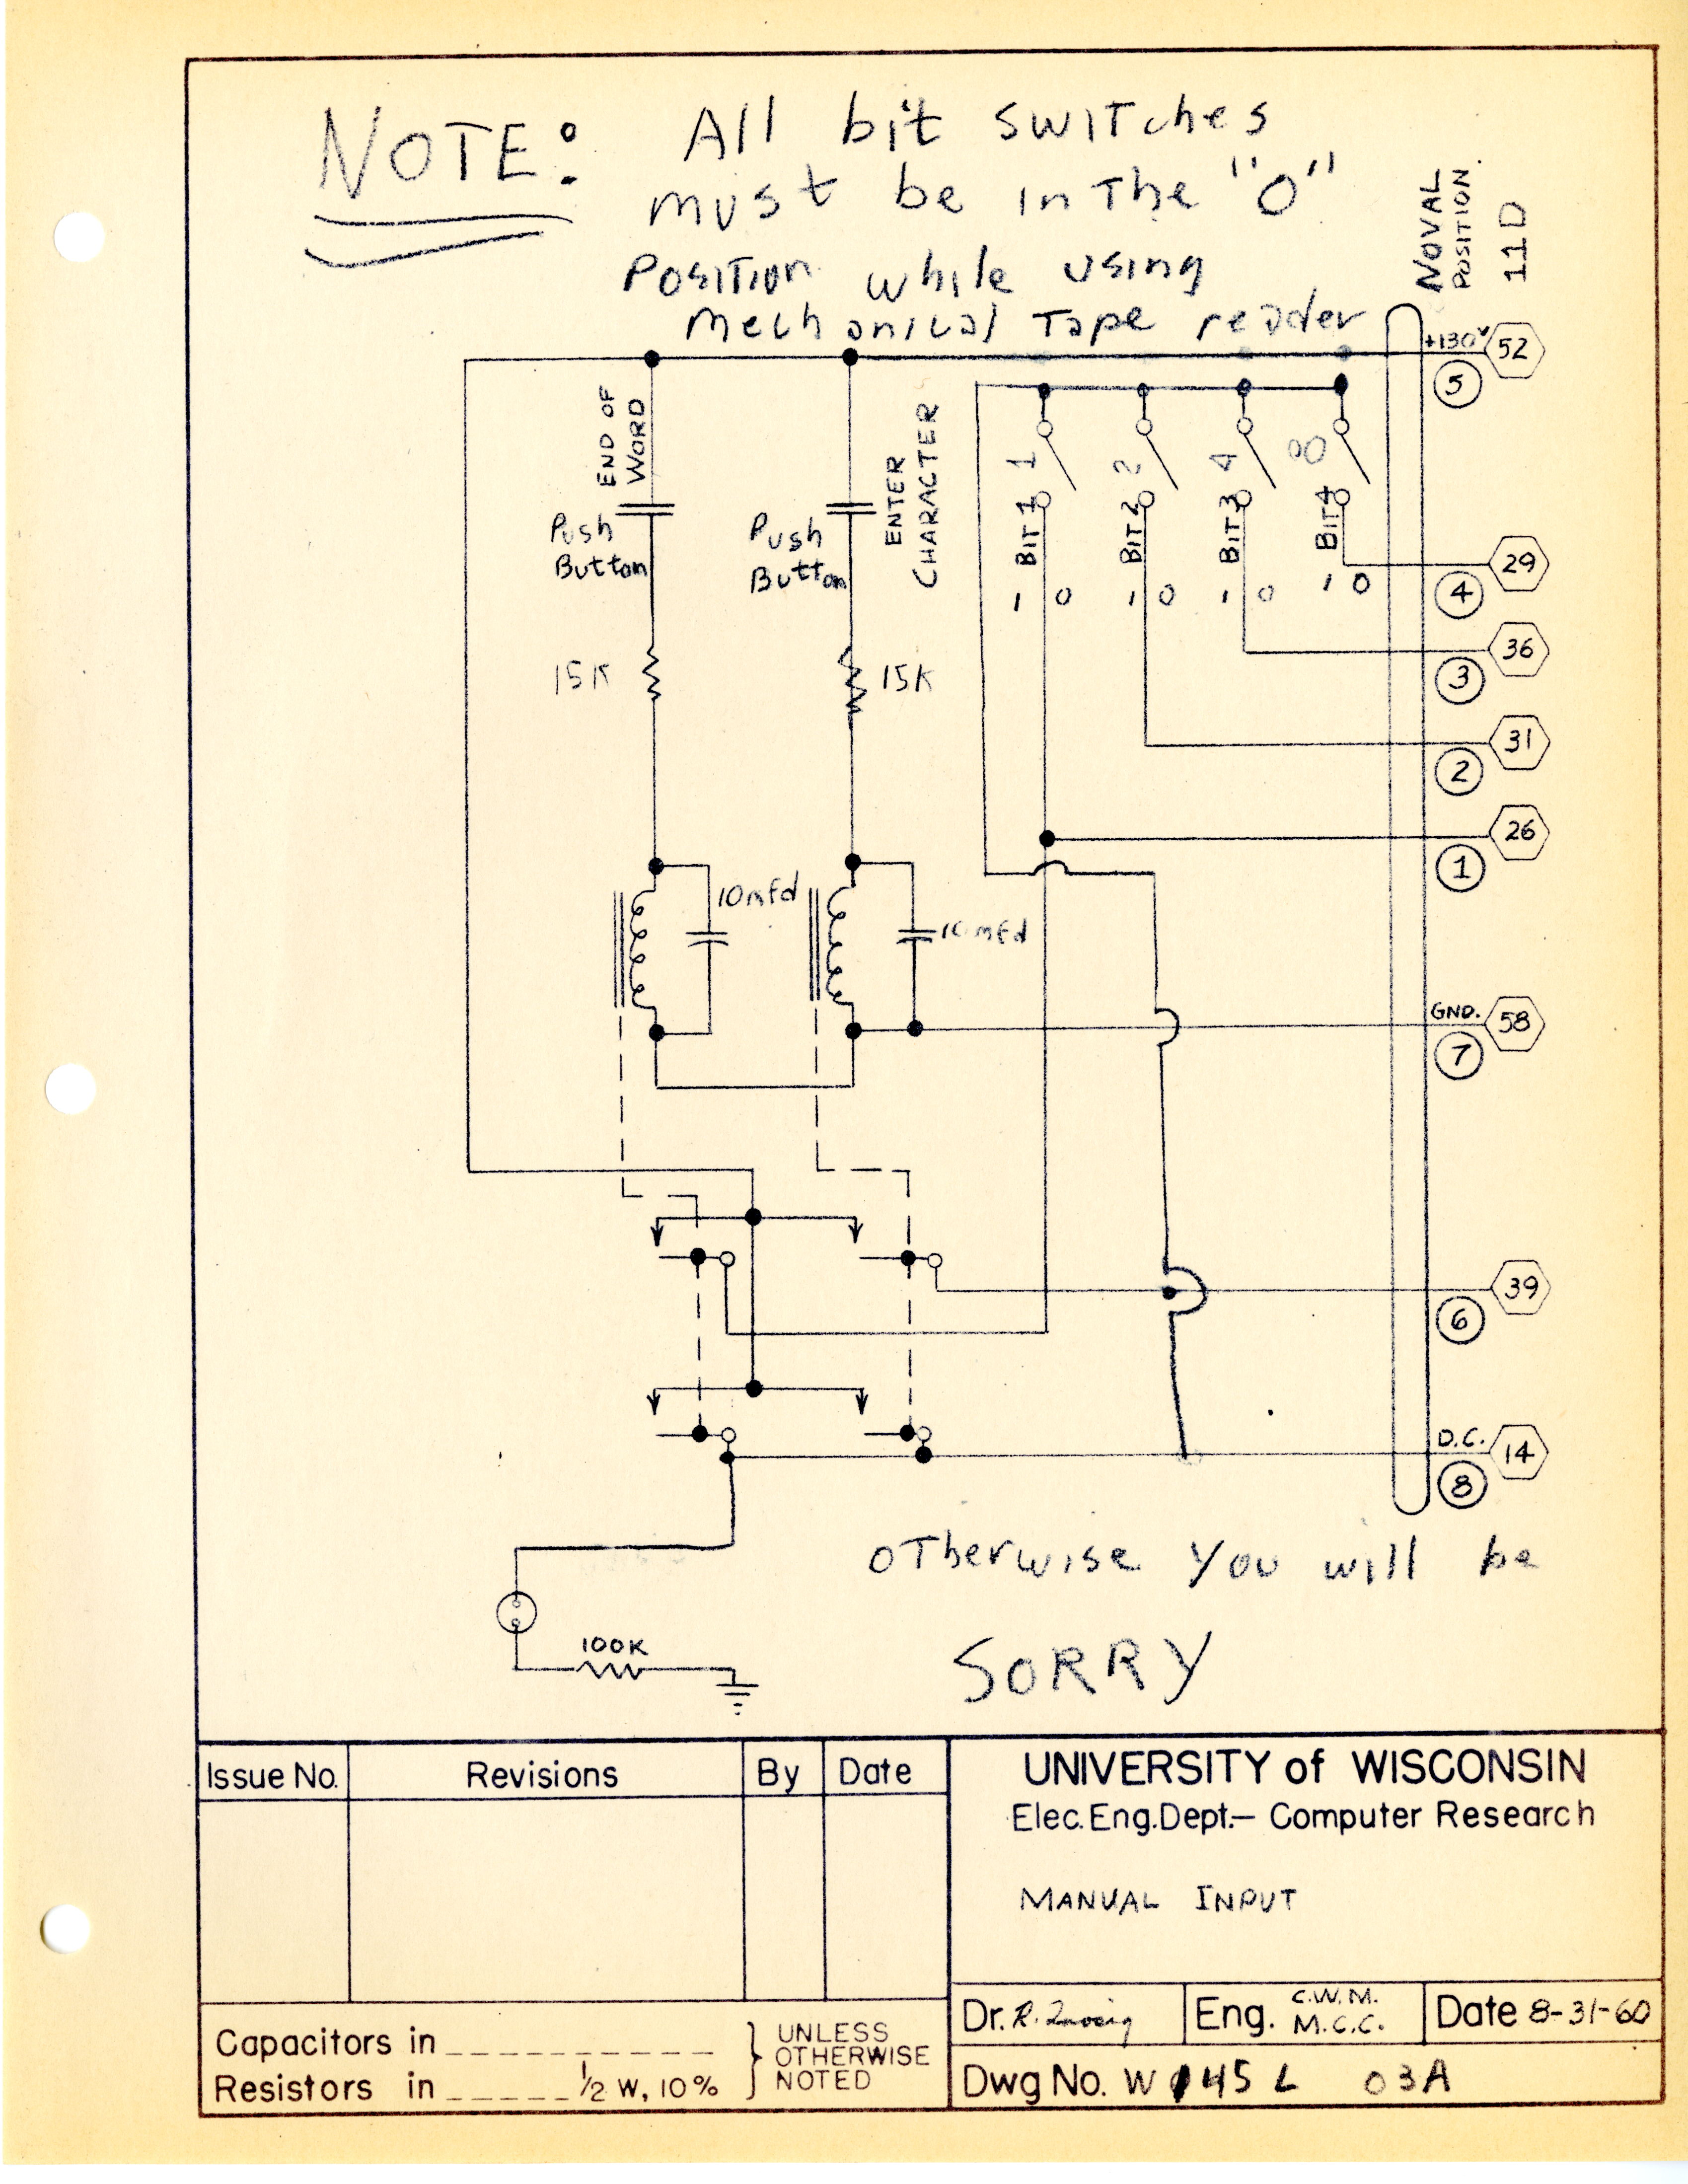 NOTE: All bit switches
must be in The "O"
Position while using
Mechanical Tape reader
NOVAL
POSITION.
11D
+130V 52
5
END OF
WORD
Push
Button
ENTER
CHARACTER
Push
Button
1 2 4 8
BIT 1 BIT 2 BIT 3 BIT 4
1 0 1 0 1 0 1 0
29
4
36
3
31
2
26
1
15K 15K
10mfd 10mfd
GND. 58
7
39
6
D.C. 14
8
OTherwise you will be
SORRY
100K
Issue No. Revisions By Date
UNIVERSITY of WISCONSIN
Elec. Eng. Dept.— Computer Research
MANUAL INPUT
Dr. R. Eng. C.W.M.
M.C.C.
Date 8-31-60
Dwg No. W 145 L 03A
Capacitors in __________
Resistors in _____ ½ W, 10%
UNLESS
OTHERWISE
NOTED